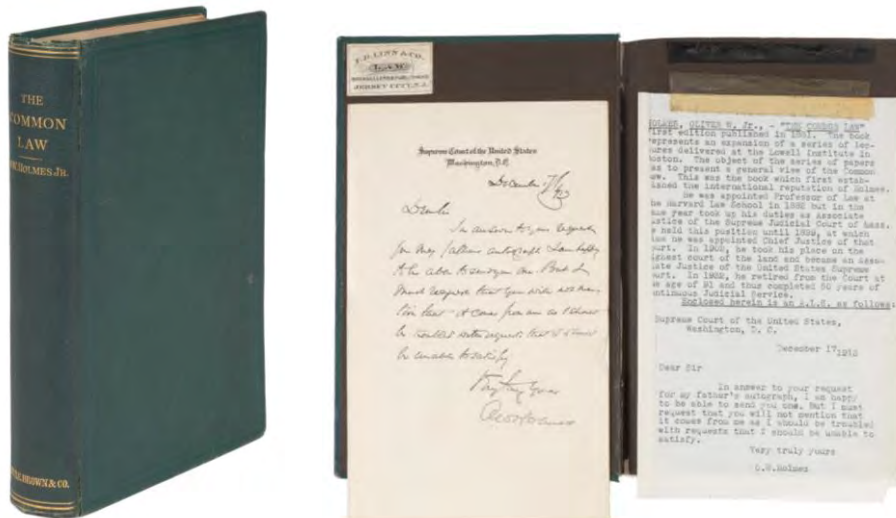 THE
COMMON
LAW
O.W. HOLMES JR.
BROWN & CO.
F. D. LINN & CO.
JERSEY CITY, N.J.
Supreme Court of the United States
Washington, D.C.
December 17/
Dear Sir
In answer to your request
for my father's autograph I am happy
to be able to send you one. But I
must request that you will not men-
tion that it comes from me as I should
be troubled with requests that I should
be unable to satisfy
Very truly yours
O. W. Holmes
HOLMES, OLIVER W. Jr., - "THE COMMON LAW"
First edition published in 1881. The book
represents an expansion of a series of lec-
tures delivered at the Lowell Institute in
Boston. The object of the series of papers
was to present a general view of the Common
Law. This was the book which first estab-
lished the international reputation of Holmes.
He was appointed Professor of Law at
the Harvard Law School in 1882 but in the
same year took up his duties as Associate
Justice of the Supreme Judicial Court of Mass.
He held this position until 1899, at which
time he was appointed Chief Justice of that
Court. In 1902, he took his place on the
highest court of the land and became an Asso-
ciate Justice of the United States Supreme
Court. In 1932, he retired from the Court at
the age of 91 and thus completed 50 years of
continuous Judicial Service.
Enclosed herein is an A.L.S. as follows:
Supreme Court of the United States,
Washington, D. C.
December 17, 1913
Dear Sir
In answer to your request
for my father's autograph, I am happy
to be able to send you one. But I must
request that you will not mention that
it comes from me as I should be troubled
with requests that I should be unable to
satisfy.
Very truly yours
O.W.Holmes